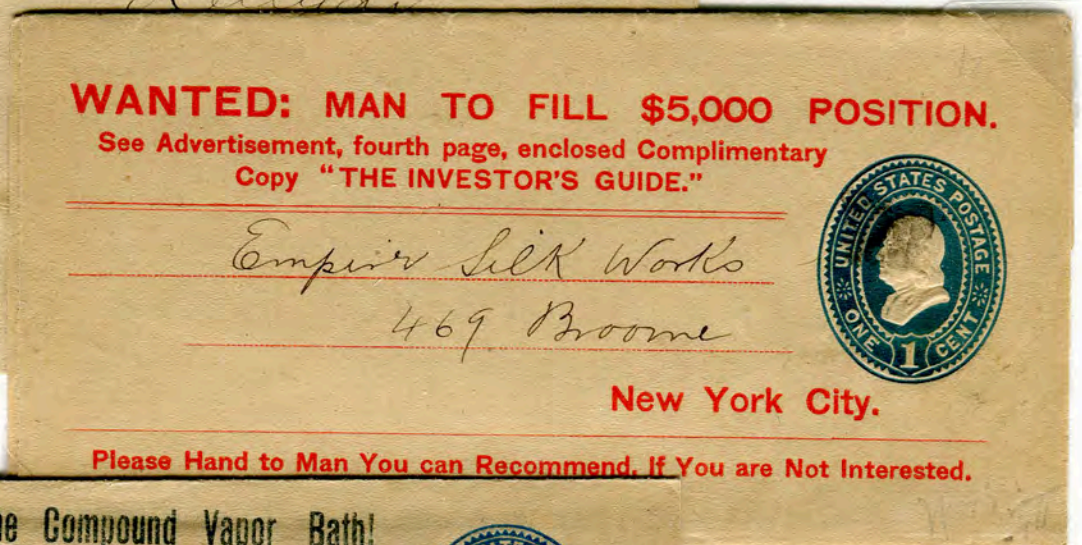 WANTED: MAN TO FILL $5,000 POSITION.
See Advertisement, fourth page, enclosed Complimentary
Copy "THE INVESTOR'S GUIDE."
UNITED STATES POSTAGE
ONE 1 CENT
Empire Silk Works
469 Broome
New York City.
Please Hand to Man You can Recommend, If You are Not Interested.
Compound Vapor Bath!